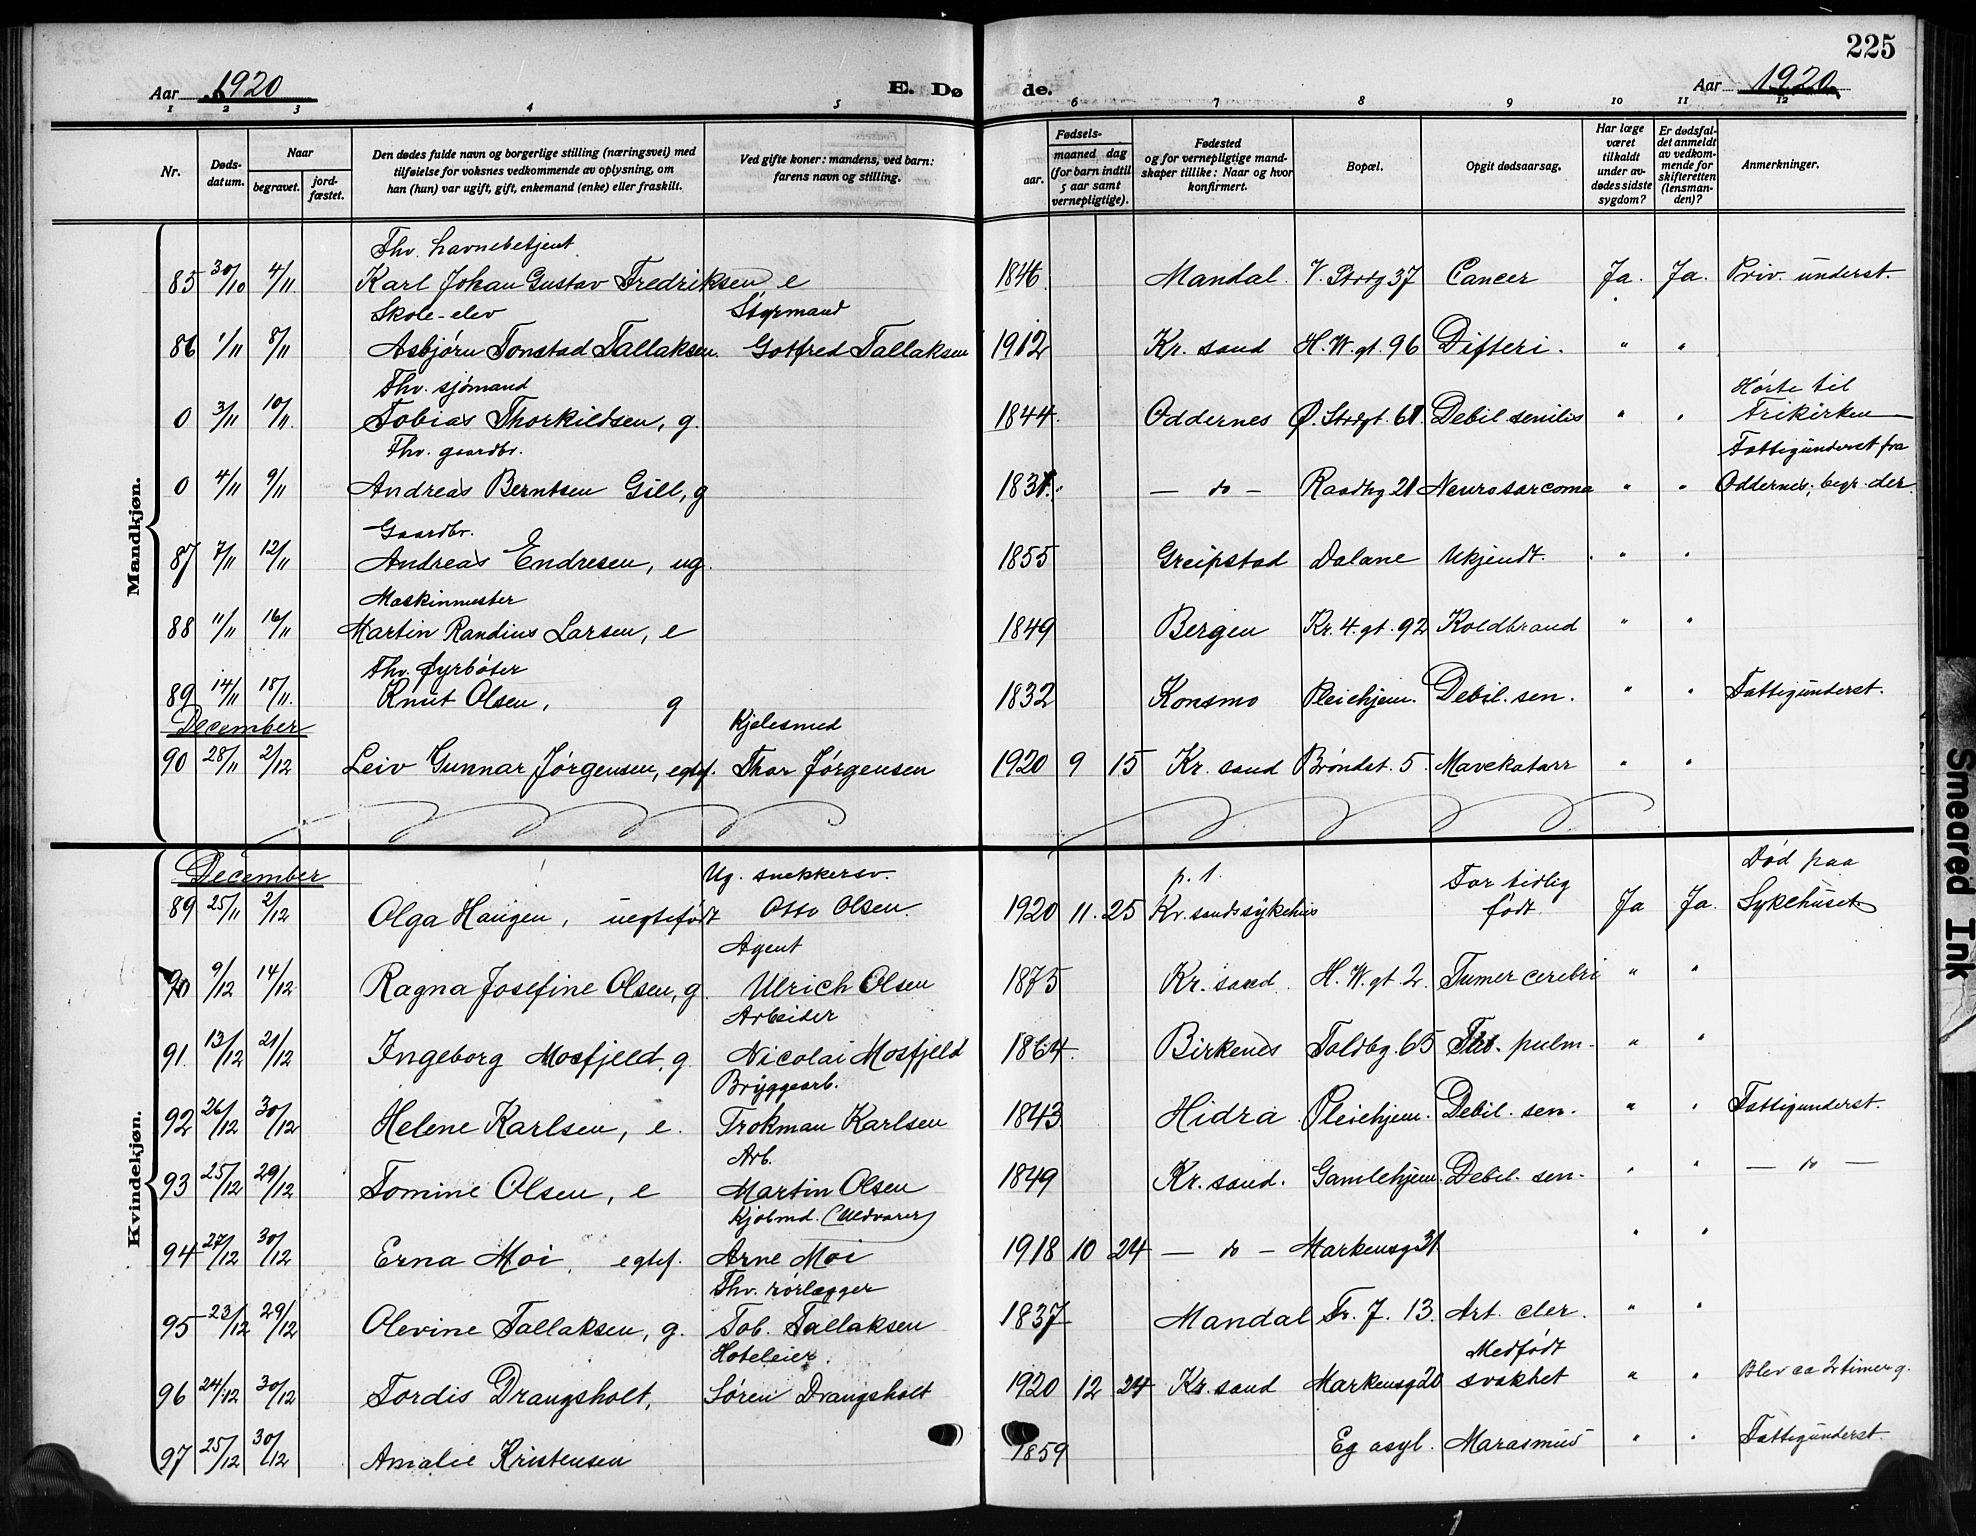 225
Aar 1920 E. Dø de. Aar 1920
1 2 3 4 5 6 7 8 9 10 11 12
Nr.
Døds-
datum.
Naar
begravet.
jord-
fæstet.
Den dødes fulde navn og borgerlige stilling (næringsvei) med
tilføielse for voksnes vedkommende av oplysning, om
han (hun) var ugift, gift, enkemand (enke) eller fraskilt.
Ved gifte koner: mandens, ved barn:
farens navn og stilling.
Fødsels-
aar.
maaned dag
(for barn indtil
5 aar samt
vernepligtige).
Fødested
og for vernepligtige mand-
skaper tillike: Naar og hvor
konfirmert.
Bopæl.
Opgit dødsaarsag.
Har læge
været
tilkaldt
under av-
dødes sidste
sygdom?
Er dødsfal-
det anmeldt
av vedkom-
mende for
skifteretten
(lensman-
den)?
Anmerkninger.
Mandkjøn.
Fhv. havnebetjent
85 30/10 4/11 Karl Johan Gustav Fredriksen e 1846 Mandal. V. Strdg 37 Cancer Ja. Ja. Priv. underst.
Skole-elev Styrmand
86 1/11 8/11 Asbjørn Tonstad Tallaksen. Gotfred Tallaksen 1912 Kr. sand H. W. gt. 96 Difteri. " "
Fhv. sjømand Hørte til
0 3/11 10/11 Tobias Thorkildsen, g. 1844. Oddernes Ø. Strdgt. 61 Debil senilis " " Frikirken
Fhv. gaardbr. Fattigunderst fra
0 4/11 9/11 Andreas Berntsen Gill, g — do — Raadhg 21 Neurosarcoma " " Oddernes, begr. der.
Gaardbr.
87 7/11 12/11 Andreas Endresen, ug. 1855 Greipstad Dalane Ukjendt. " "
Maskinmester
88 11/11 16/11 Martin Randius Larsen, e 1849 Bergen Kr. 4. gt. 92 Koldbrand " "
Fhv. fyrbøter
89 14/11 18/11 Knut Olsen, g 1832 Konsmo Pleiehjem. Debil. sen. " " Fattigunderst.
December Kjelesmed
90 28/11 2/12 Leiv Gunnar Jørgensen, egtef. Thor Jørgensen 1920 9 15 Kr. sand Brøndst. 5. Mavekatarr " "
Kvindekjøn.
December Ug. snekkersv. p. t. For tidlig Død paa
89 25/11 2/12 Olga Haugen, uegtefødt Otto Olsen. 1920 11. 25 Kr. sands sykehus født Ja Ja. Sykehuset
Agent
90 9/12 14/12 Ragna Josefine Olsen, g. Ulrich Olsen 1875 Kr. sand. H. W. gt. 2. Tumer cerebri " "
Arbeider
91. 13/12 21/12 Ingeborg Mosfjeld, g. Nicolai Mosfjeld 1864. Birkenes Toldbg. 65 Tub. pulm. " "
Bryggearb.
92 26/12 30/12 Helene Karlsen, e. Trokman Karlsen 1843 Hidra Pleiehjem. Debil. sen. " " Fattigunderst.
Arb.
93 25/12 29/12 Tomine Olsen, e Martin Olsen 1849 Kr. sand. Gamlehjem. Debil. sen. " " — do —
Kjøbmd. (Uldvarer)
94 27/12 30/12 Erna Moi, egtef. Arne Moi 1918 10 24 — do — Markensg 31 " "
Fhv. rørlægger
95 23/12 29/12 Olevine Tallaksen, g. Tob. Tallaksen 1837 Mandal Fr. J. 13. Art. cler. " "
Hoteleier. Medfødt
96 24/12 30/12 Tordis Drangsholt, Søren Drangsholt 1920 12 24 Kr. sand Markensg 20 svakhet " " Blev ca 2 timer g.
97 25/12 30/12 Amalie Kristensen 1859 Eg asyl. Marasmus " " Fattigunderst.
Smeared Ink